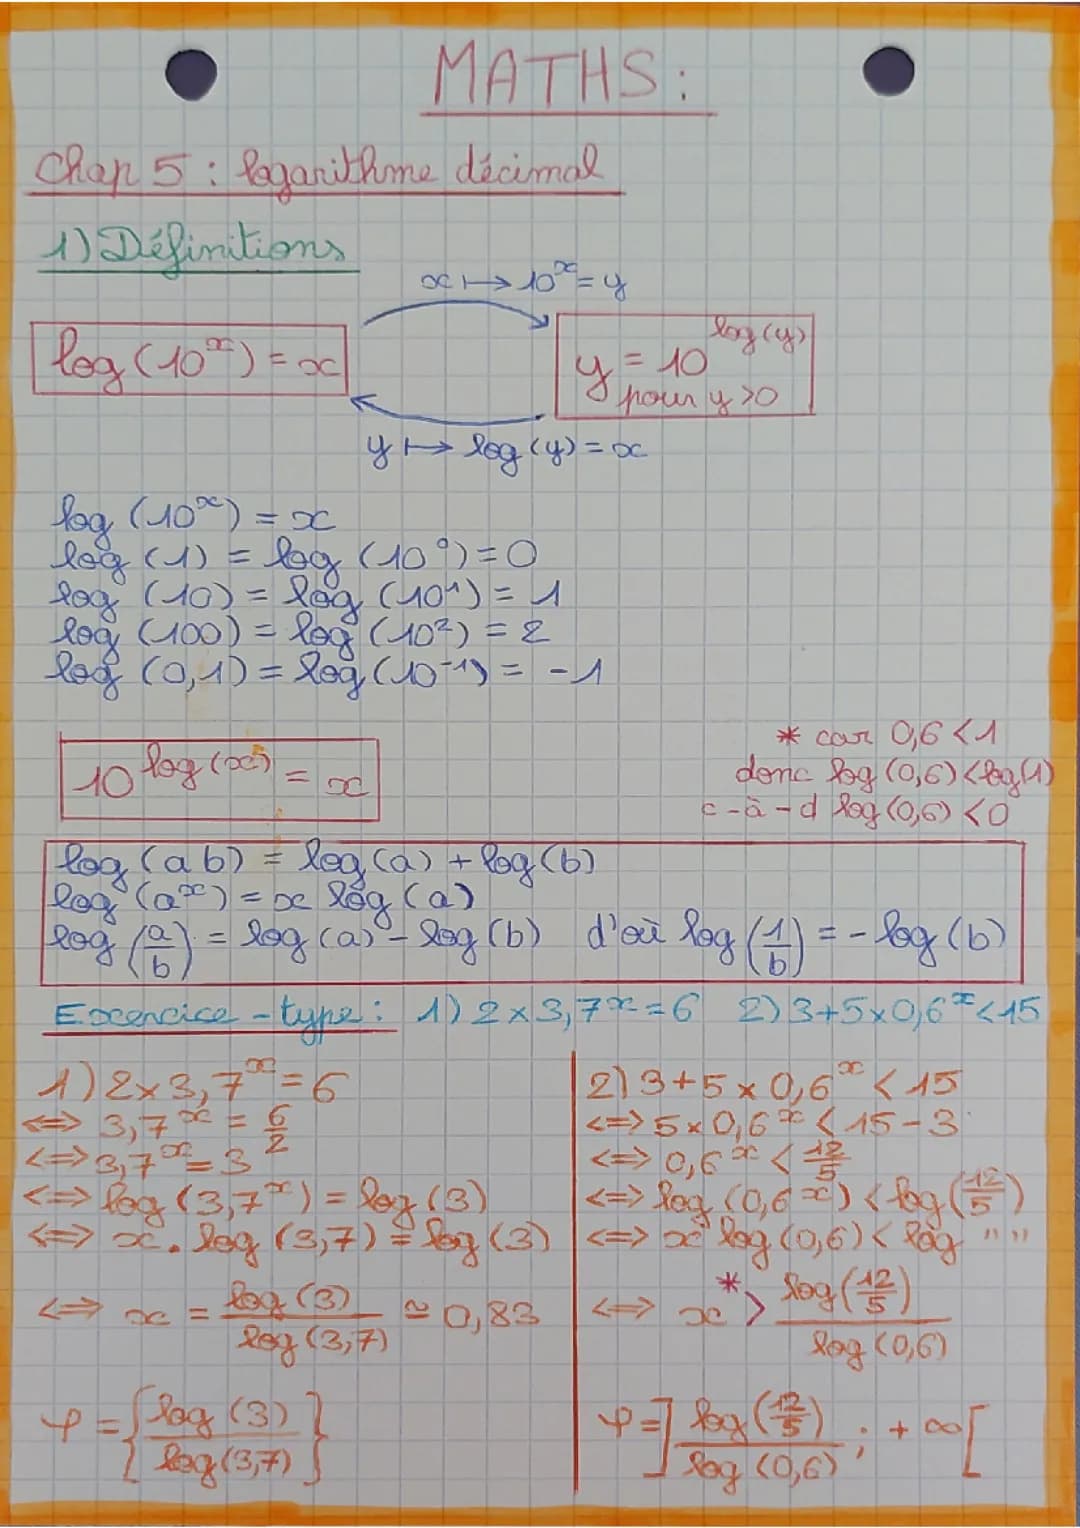 MATHS :
Chap 5 : logarithme décimal
1) Définitions
x ↦ 10^x = y
log (10^x) = x
y = 10^log(y)
pour y >0
y ↦ log (y) = x
log (10^x) = x
log (1) = log (10^0) = 0
log (10) = log (10^1) = 1
log (100) = log (10^2) = 2
log (0,1) = log (10^-1) = -1
10^log(x) = x
* car 0,6 < 1
donc log (0,6) < log(1)
c-à-d log (0,6) < 0
log (a b) = log (a) + log (b)
log (a^x) = x log (a)
log (a/b) = log (a) - log (b) d'où log (1/b) = - log (b)
Excercice - type : 1) 2 × 3,7^x = 6 2) 3+5×0,6^x < 15
1) 2 × 3,7^x = 6
<=> 3,7^x = 6/2
<=> 3,7^x = 3
<=> log (3,7^x) = log (3)
<=> x . log (3,7) = log (3)
<=> x = log (3)/log (3,7) ≃ 0,83
φ = { log (3)/log (3,7) }
2) 3 + 5 × 0,6^x < 15
<=> 5 × 0,6^x < 15 - 3
<=> 0,6^x < 12/5
<=> log (0,6^x) < log (12/5)
<=> x log (0,6) < log " "
<=> x >* log (12/5)/log (0,6)
φ = ] log (12/5)/log (0,6) ; + ∞ [